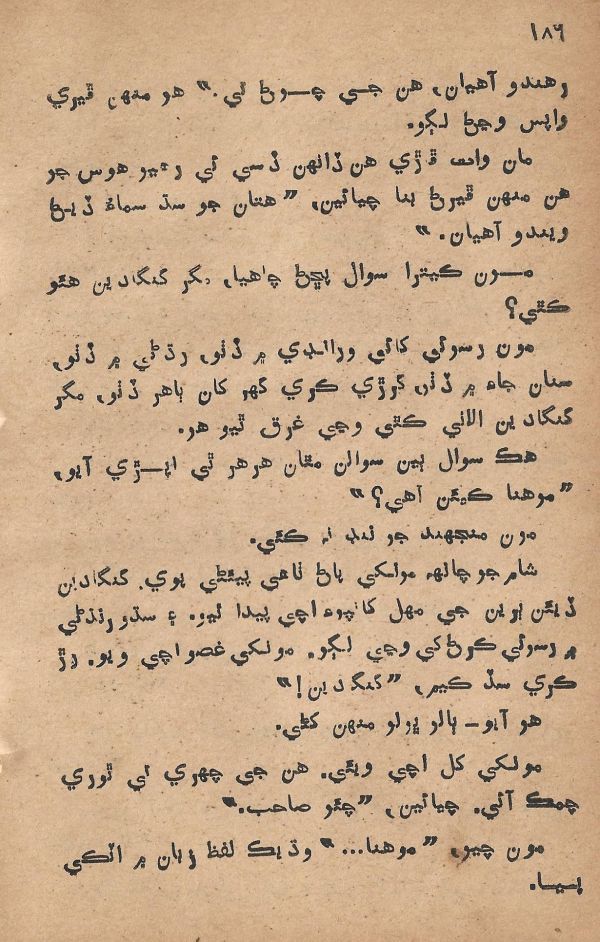 ١٨٦
رهندو آهيان، هن جي چوڻ تي.” هو منهن ڦيري
واپس وڃڻ لڳو.
مان وات ڦاڙي هن ڏانهن ڏسي ئي رهيو هوس جو
هن منهن ڦيرڻ بنا چيائين، ”هتان جو سڌ سماءُ ڏيڻ
ويندو آهيان.“
مون ڪيترا سوال پڇڻ چاهيا، مگر گنگادين هئو
ڪٿي؟
مون رسوئي کائي ورانڊي ۾ ڏٺو، رڌڻي ۾ ڏٺو،
سنان جاءِ ۾ ڏٺو، ڊوڙي ڪري گهر کان ٻاهر ڏٺو، مگر
گنگادين الائي ڪٿي وڃي غرق ٿيو هو.
هڪ سوال ٻين سوالن مٿان هرهر ٿي اڀري آيو،
”موهنا ڪيئن آهي؟“
مون منجهند جو ننڊ نہ ڪئي.
شام جو چانهہ مونکي پاڻ ٺاهي پيئڻي پوي. گنگادين
ڏيئن ٻرين جي مهل ڪانپوءِ اچي پيدا ٿيو. ۽ سڌو رنڌڻي
۾ رسوئي ڪرڻ کي وڃي لڳو. مونکي غصو اچي ويو. رڙ
ڪري سڏ ڪيم، ”گنگادين!“
هو آيو– ٻالو ڀولو منهن کڻي.
مونکي کل اچي ويئي. هن جي چهري تي ٿوري
چمڪ آئي. چيائين، ”چئو صاحب.“
مون چيو، ”موهنا...“ وڌيڪ لفظ زبان ۾ اٽڪي
پيا.